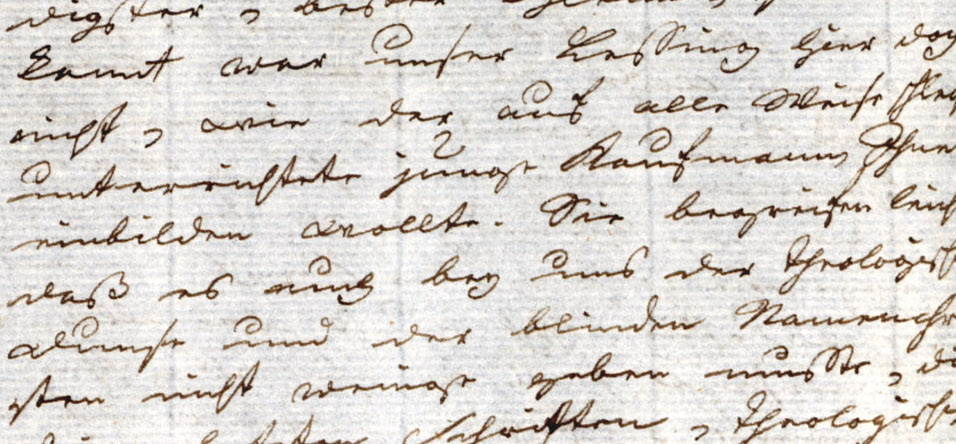 digster, bester
kannt war unser Lessing hier doch
nicht, wie der auf alle Weise schlecht
unterrichtete junge Kaufmann Ihnen
einbilden wollte. Sie begreifen leicht
daß es auch bey uns der theologisch
und der blinden Namenchri
sten nicht wenige geben musste, di
Schriften, theologische